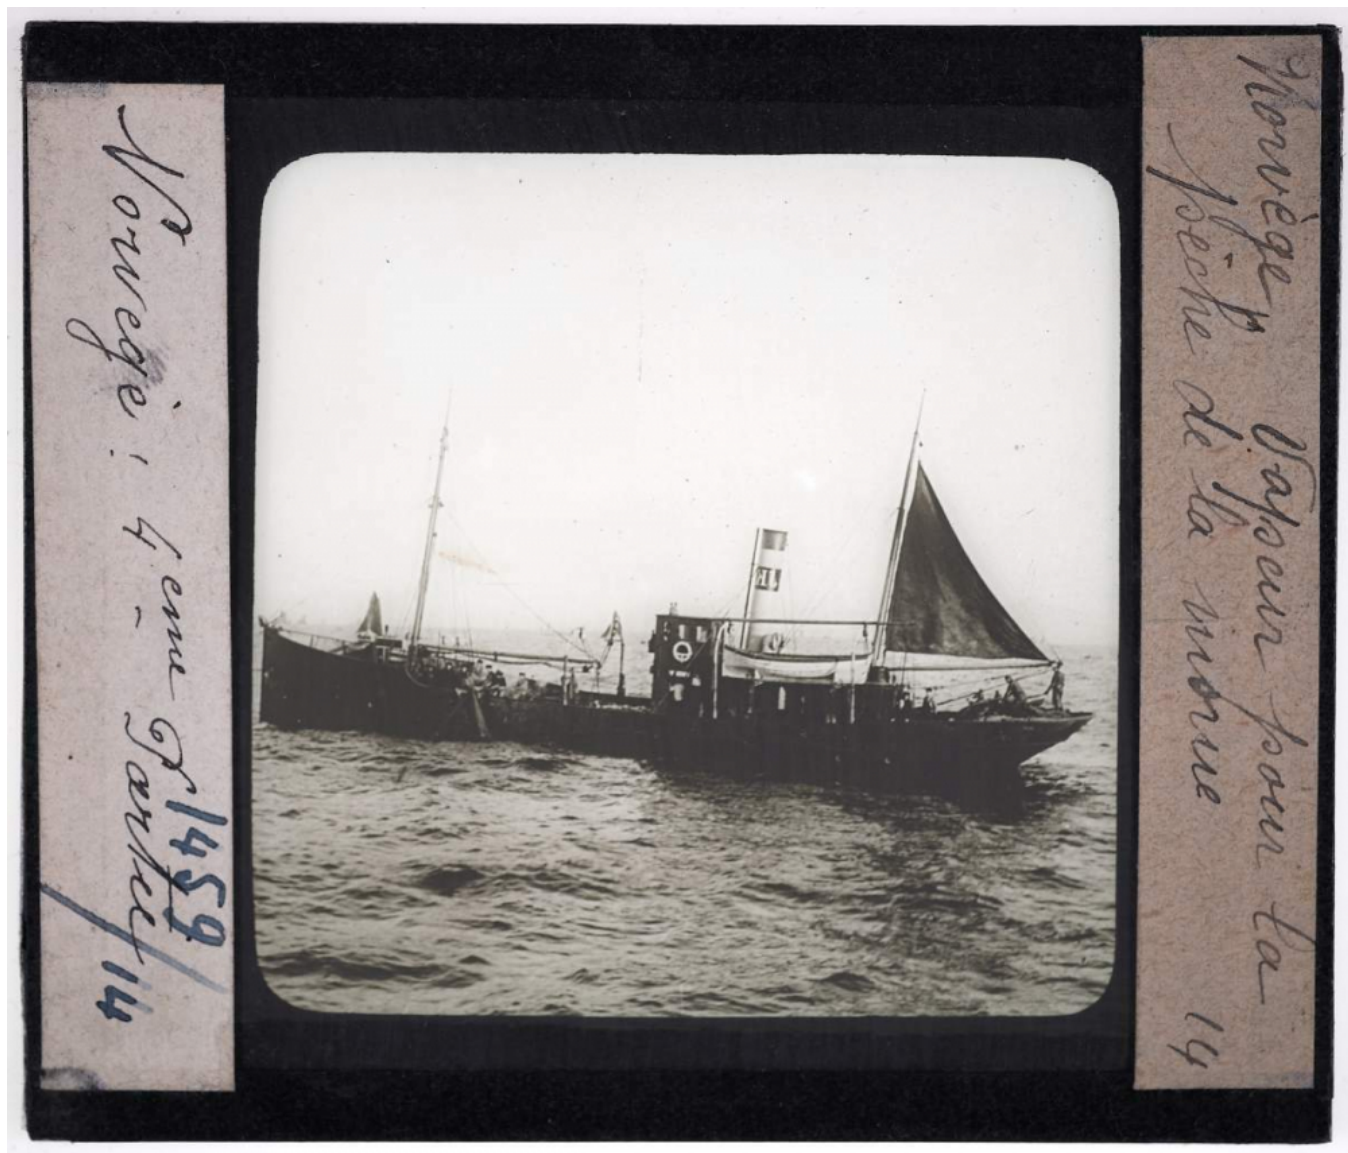 Norvège : 4eme Partie/14
1459/
Norvège Vapeur pour la
pêche de la morue 14